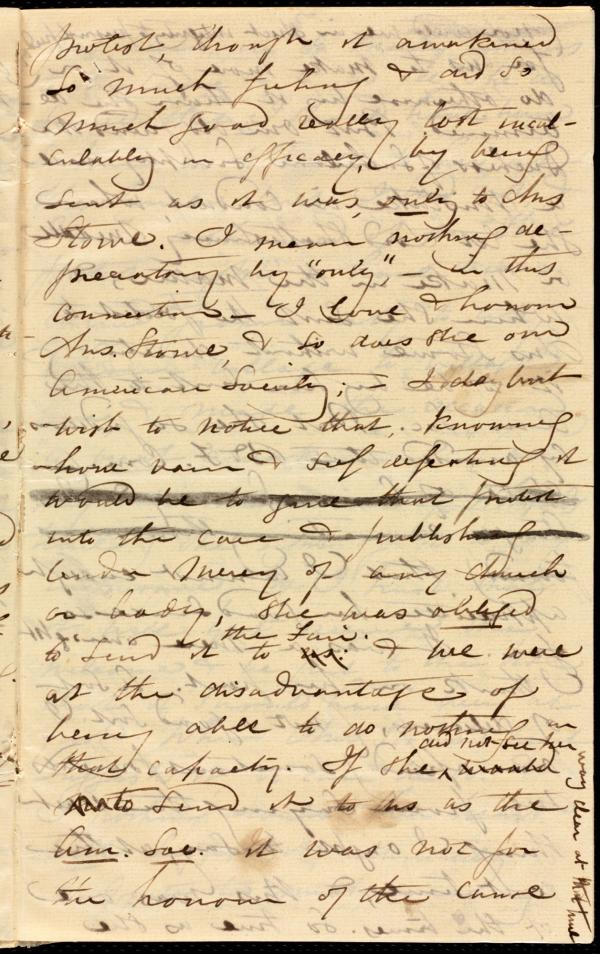 protest, though it awakened
so much feeling & did so
much good really lost incal-
culably in efficacy, by being
sent as it was, only to Mrs
Stowe. I mean nothing de-
precatory by "only," – in this
connection – I love & honour
Mrs. Stowe, & so does the
American Society; – I do but
wish to notice that, knowing
how vain & self defeating it
would be to give that protest
into the care & publishing
tender mercy of any church
or body, she was obliged
to send it to the Fair. & we were
at the disadvantage of
being able to do, nothing in
that capacity. If she did not see her way clear at that time
to send it to us as the
Am. Soc. it was not for
the honour of the cause